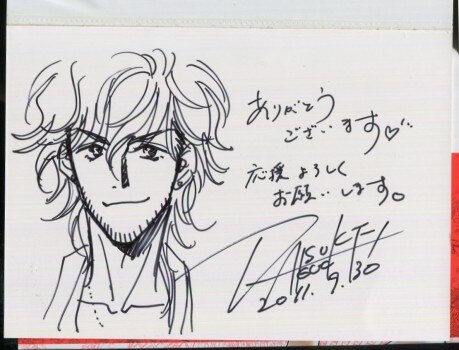 ありがとう
ございます♡
応援 よろしく
お願いします。
2011.9.30